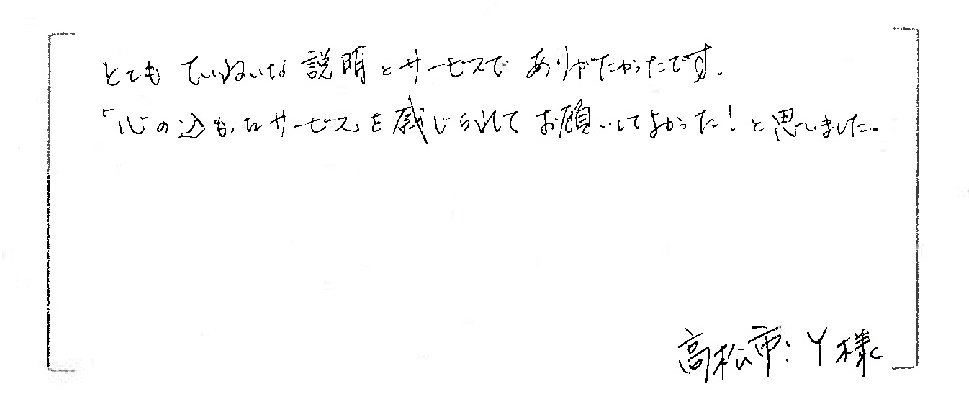 とても ていねいな 説明とサービスで ありがたかったです。
「心の込もったサービス」を感じられて お願いしてよかった！と思いました。
高松市：Y様